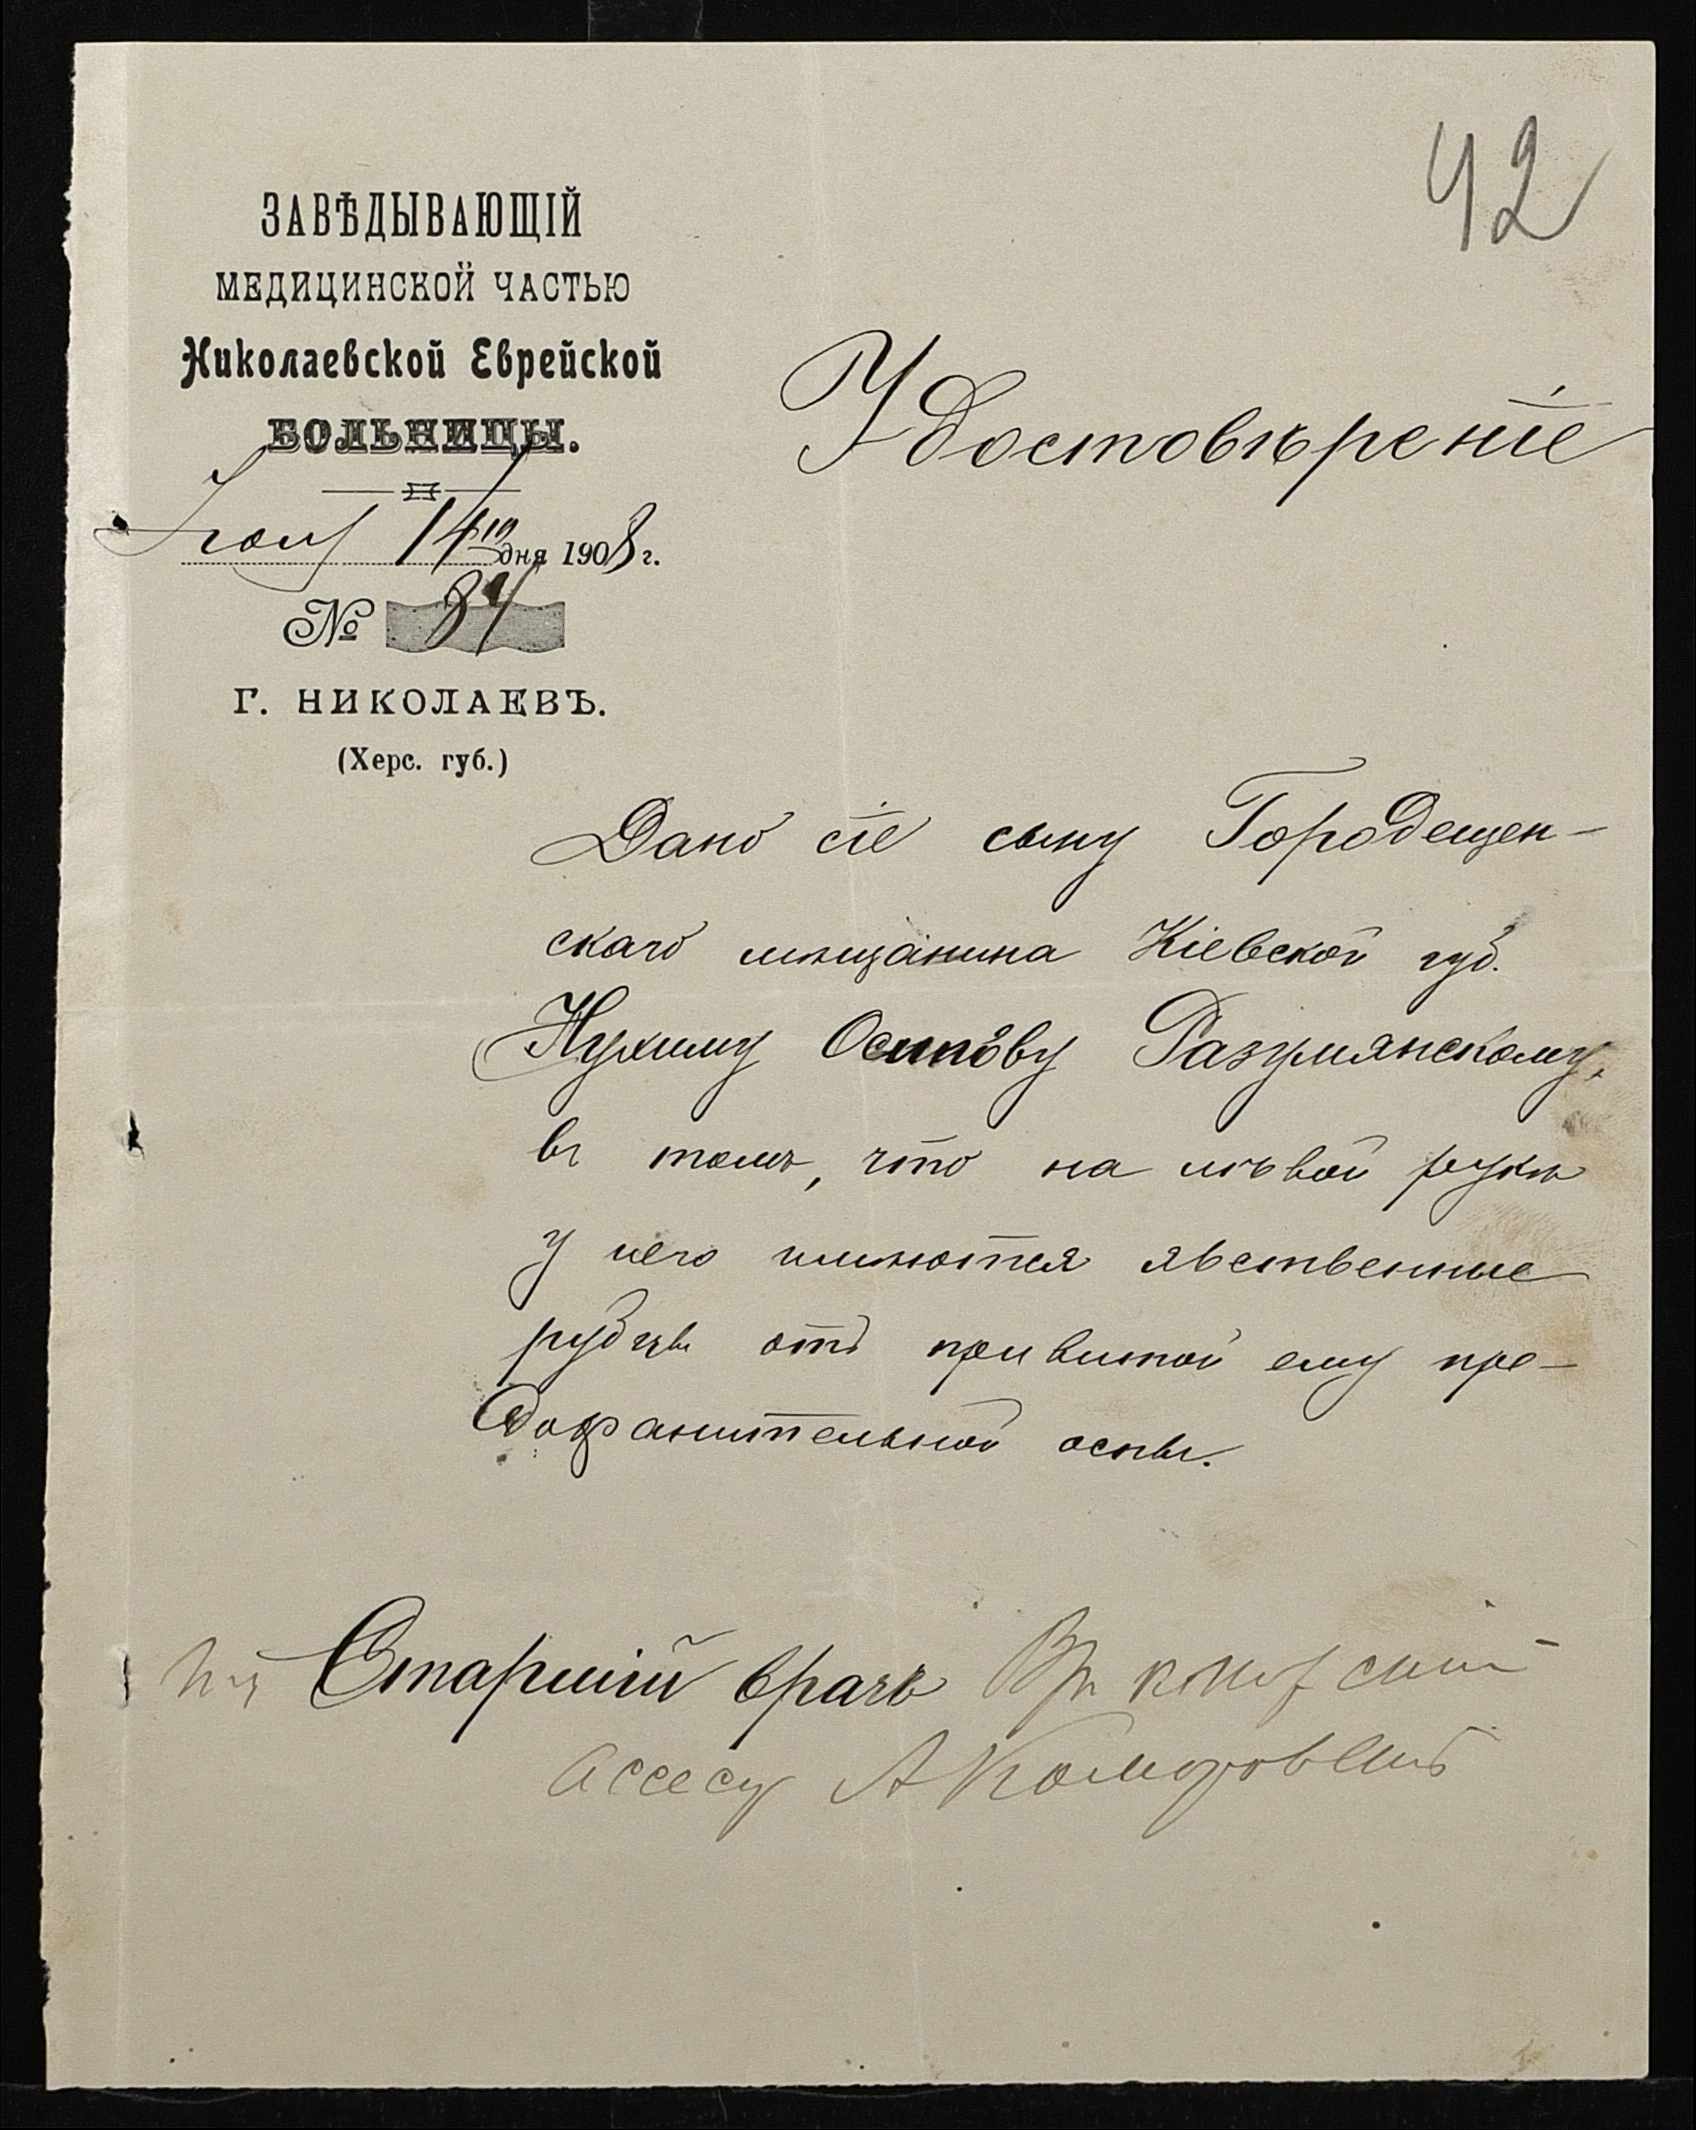 42
ЗАВѢДЫВАЮЩІЙ
МЕДИЦИНСКОЙ ЧАСТЬЮ
Николаевской Еврейской
БОЛЬНИЦЫ.
14го дня 1908 г.
№ 84
Г. НИКОЛАЕВЪ.
(Херс. губ.)
Удостовѣреніе
Дано сіе сыну Городещен-
скаго мѣщанина Кіевской губ.
Нухиму Осипову Разумянскому,
въ томъ, что на лѣвой рукѣ
у него имѣются явственные
рубцы отъ привитой ему пре-
дохранительной оспы.
Старшій врачъ
А Комаровскій